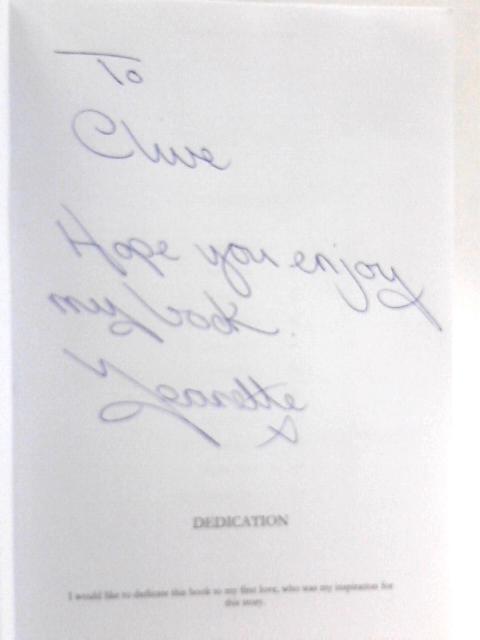 To
Clive
Hope you enjoy
my book.
Jeanette
x
DEDICATION
I would like to dedicate this book to my first love, who was my inspiration for
this story.